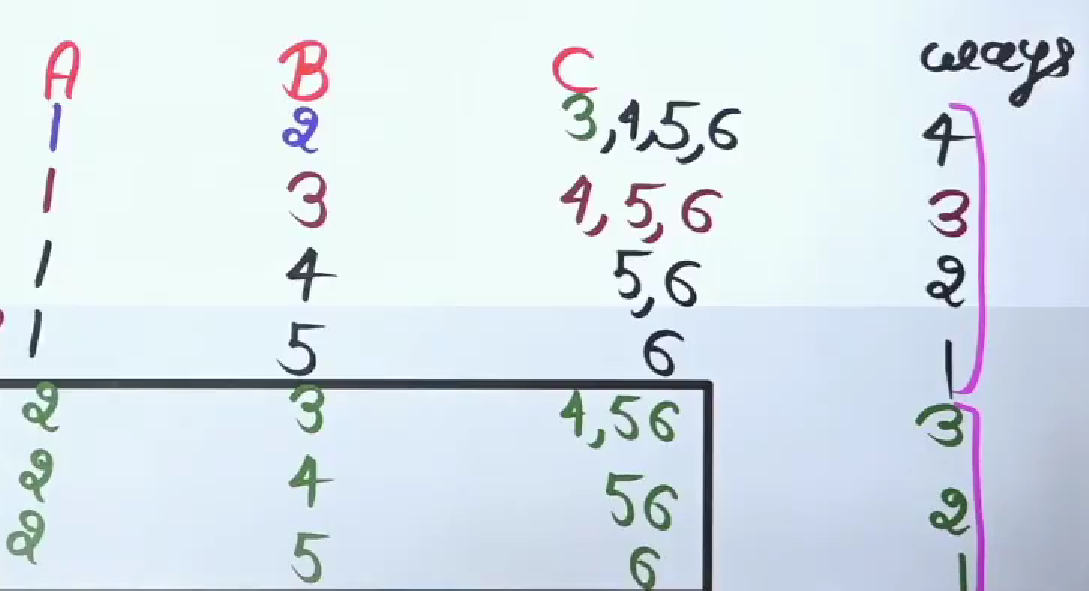 A B C ways
1 2 3,4,5,6 4
1 3 4,5,6 3
1 4 5,6 2
1 5 6 1
2 3 4,56 3
2 4 56 2
2 5 6 1